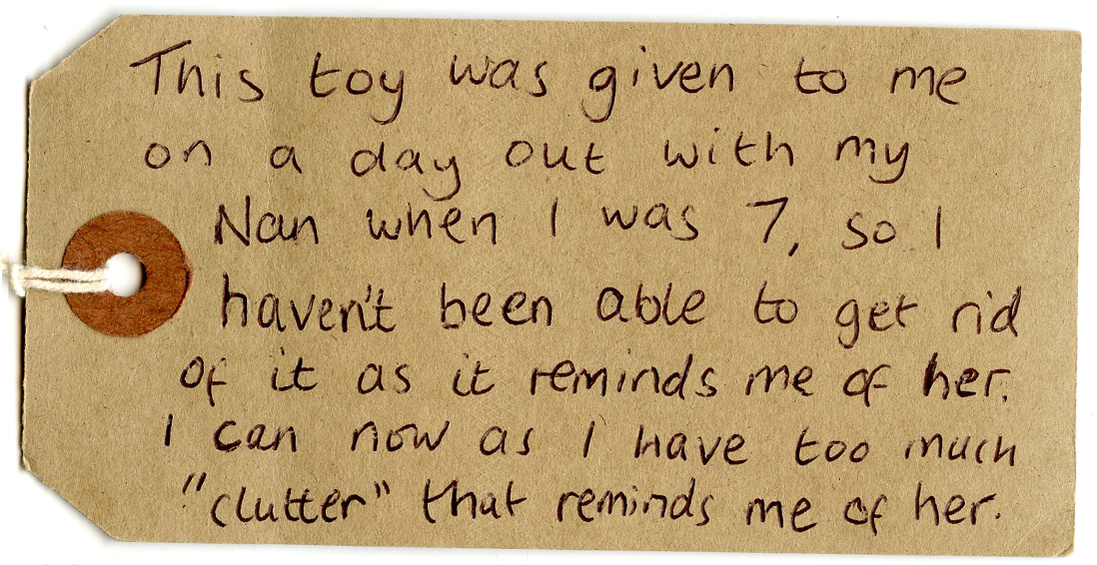 This toy was given to me
on a day out with my
Nan when I was 7, so I
haven't been able to get rid
of it as it reminds me of her.
I can now as I have too much
"clutter" that reminds me of her.